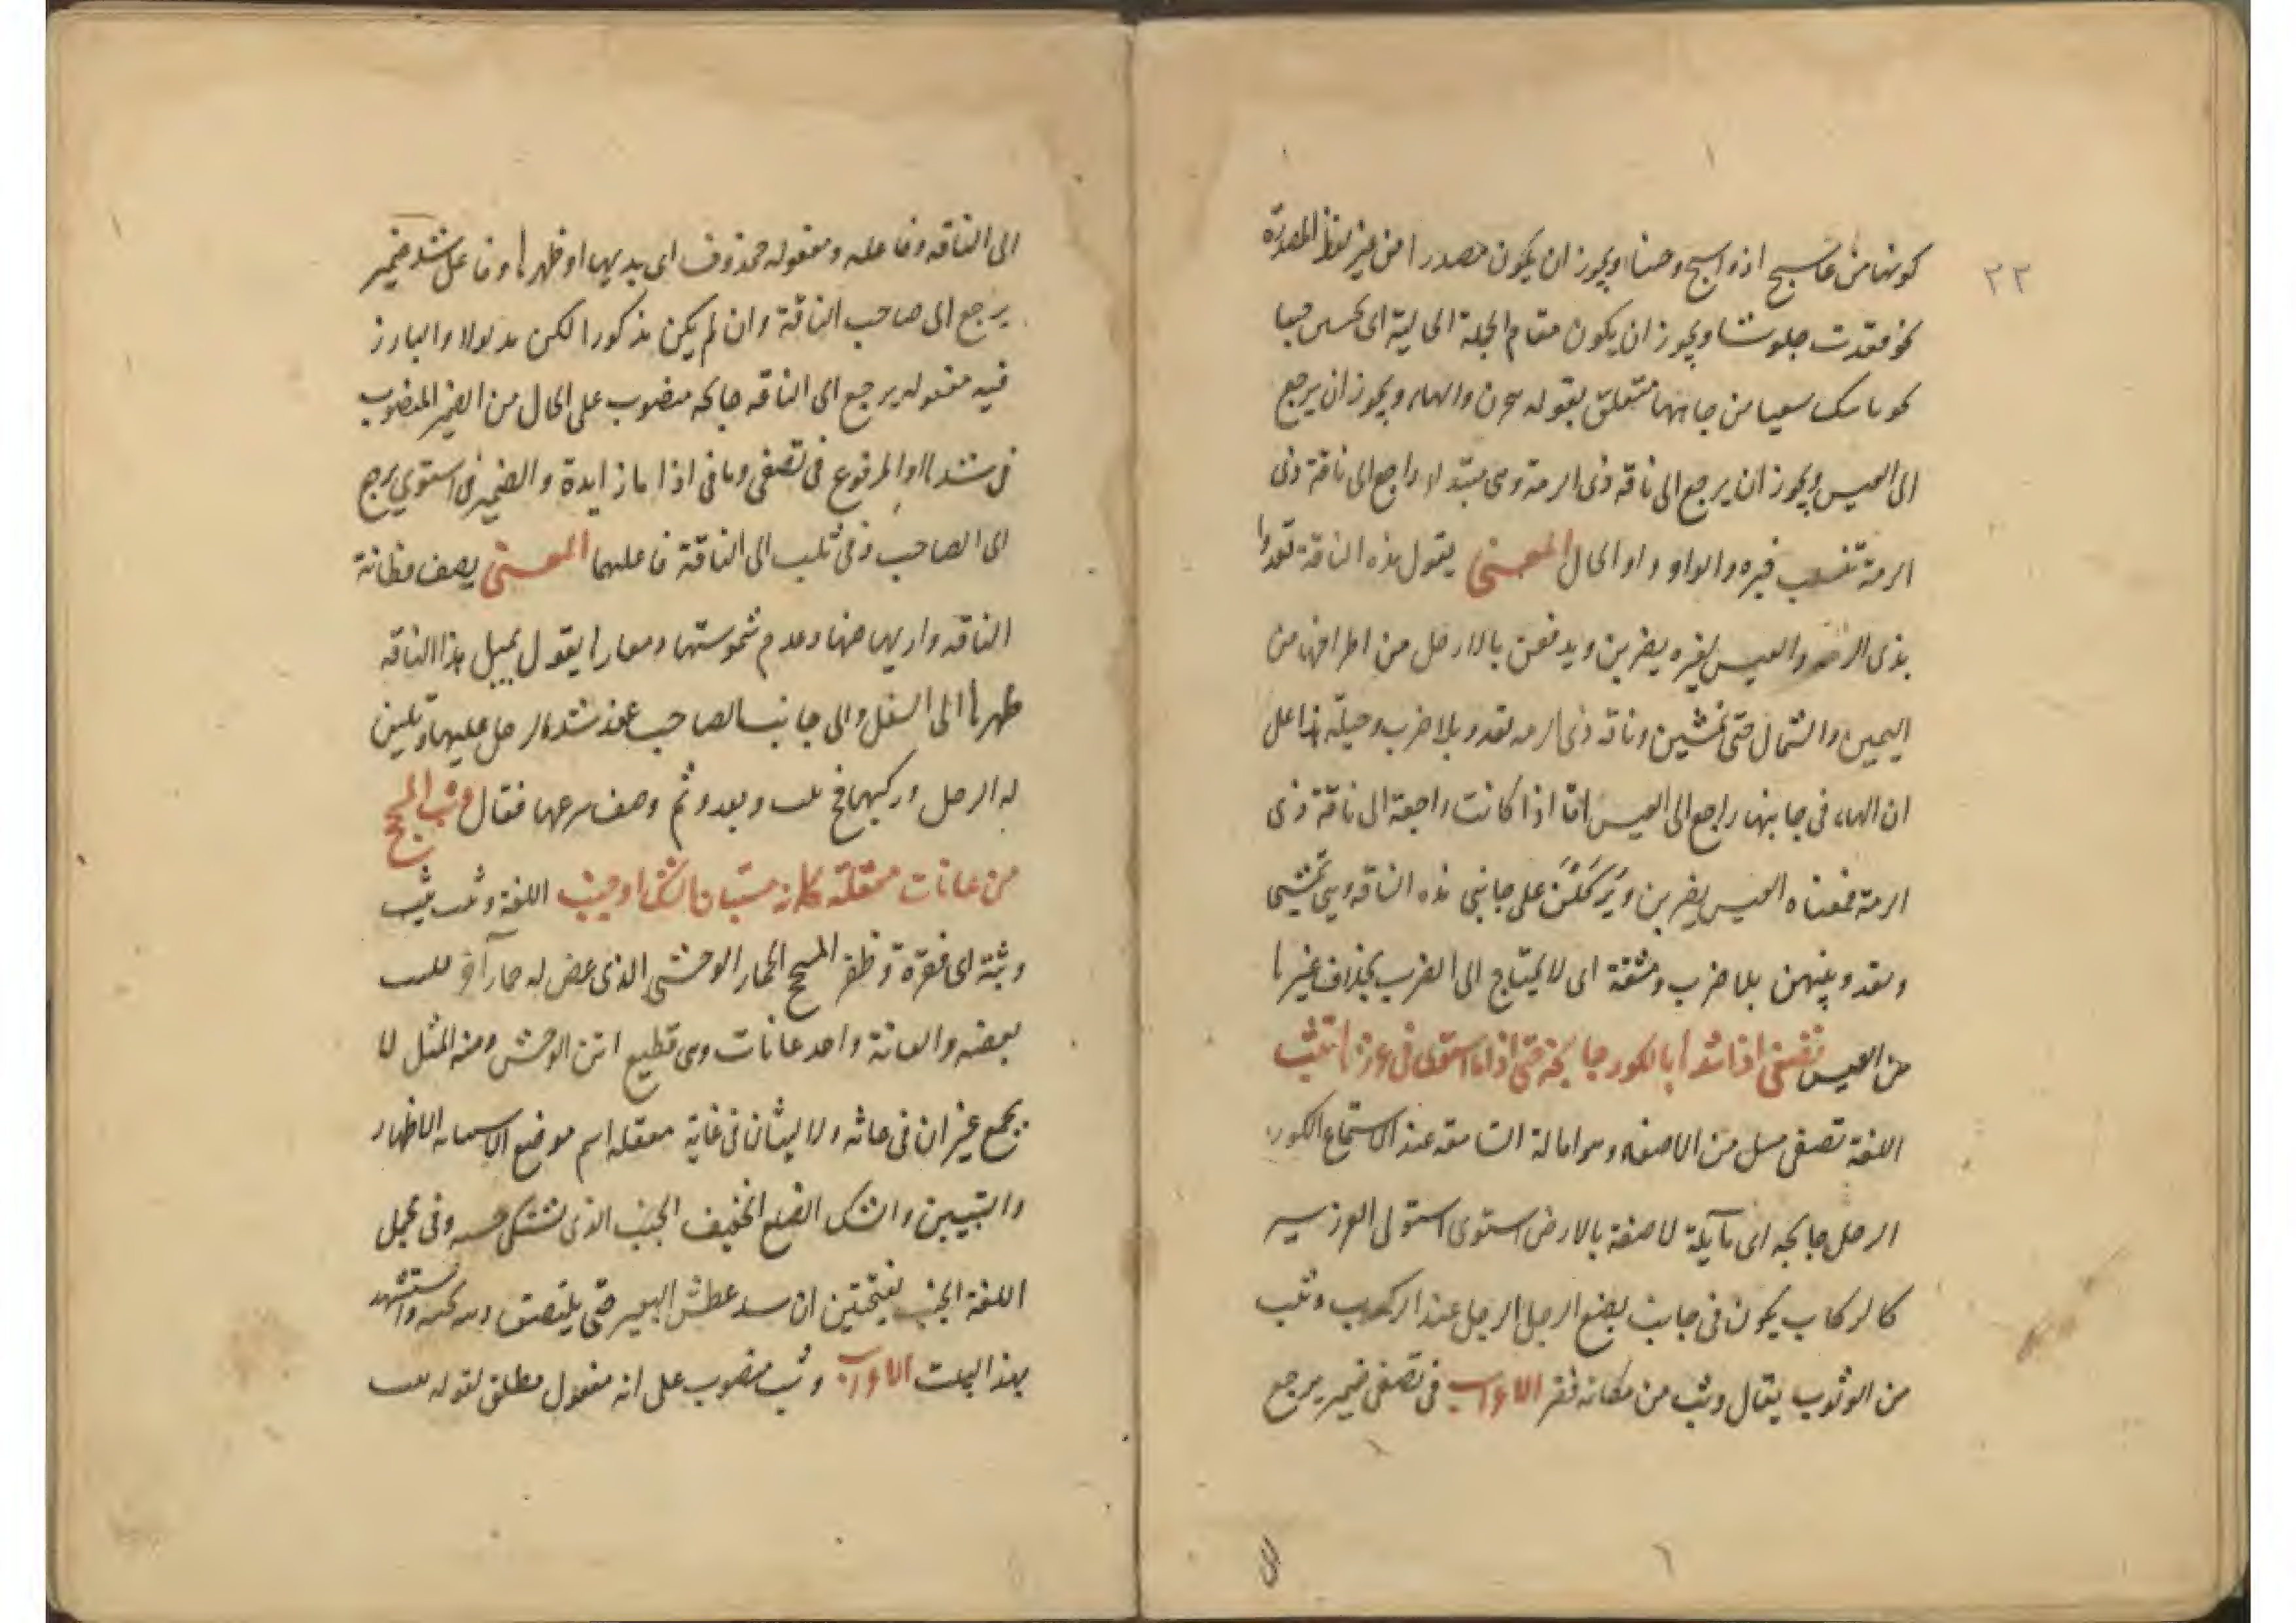 ٢٣
كونها من عاسج اذ واسج وخببا ويجوز ان يكون مصدرا من غير لفظ المصدره
نحو قعدت جلوسا ويجوز ان يكون مقام الجملة الحالية اى
سعيا من جانبها متعلق بقوله والهاء ويجوز ان يرجع
الى العيس ويجوز ان يرجع الى ناقه ذى الرمة وهى مبتدا راجع الى ناقة ذى
الرمة تنسب خبره والواو واو الحال المعنى يقول هذه الناقة تعدوا
بذى الرمه والعيس لغيره يضربن ويدفعن بالارجل من اطرافهن من
اليمين والشمال حتى تمشين وناقه ذى الرمه تعدو بلا ضرب وحيلة هذا على
ان الهاء فى جانبها راجع الى العيس اما اذا كانت راجعة الى ناقة ذى
الرمة فمعناه العيس يضربن ويركلن على جانبى هذه الناقه وهى تمشى
وتعدو بينهن بلا ضرب ومشقة اى لا يحتاج الى الضرب بخلاف غيرها
من العيس تصغى اذا شدها بالكور جانحة حتى اذا ما استوى فى غرزها تثب
اللغة تصغى من الاصغاء وهو امالة عند الاستماع الكور
الرحل جانحه اى مآيلة لاصقة بالارض استوى استولى الغرز سير
كالركاب يكون فى جانب يضع الرجل الرجل عند الركوب وتثب
من الوثوب يقال وثب من مكانه فقر الاعراب فى تصغى ضمير يرجع
الى الناقه وفاعله ومفعوله محذوف اى يديها او ظهرها وفاعل شد ضمير
يرجع الى صاحب الناقة وان لم يكن مذكورا لكن مدلولا والبارز
فيه مفعوله يرجع الى الناقه جانحه منصوب على الحال من الضمير المنصوب
فى شدها او المرفوع فى تصغى وما فى اذا ما زايدة والضمير فى استوى يرجع
الى الصاحب وفى تثب الى الناقة فاعليهما المعنى يصف فطانة
الناقه وعدم شموستها يقول تميل هذا الناقه
ظهرها الى السفل والى جانب الصاحب عند شده الرحل عليها وتلين
له الرحل وركبها فح تثب وتعدو ثم وصف سرعها فقال وثب المسحج
من عانات معقلة كانه مستبان الشك او جنب اللغة وثب يثب
وثبة اى فقرة وظفر المسحج الحمار الوحشى الذى عض له حمار آخر
بعضه والعانة واحد عانات وهى قطيع اتن الوحش ومنه المثل لا
يجمع عيران فى عانة ولا ليثان فى غاية معقله اسم موضع الاستبانه الاظهار
والتبيين والشك الضلع الخفيف الجنب الذى يشتكى جنبه وفى مجمل
اللغة الجنب بفتحتين ان يشتد عطش البعير حتى يلتصق واستشهد
بهذا البيت الاعراب وثب منصوب على انه مفعول مطلق لقوله تثب